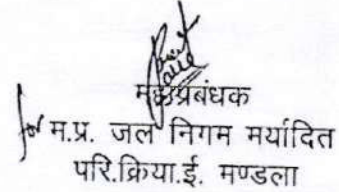 महाप्रबंधक
for म.प्र. जल निगम मर्यादित
परि.क्रिया.ई. मण्डला